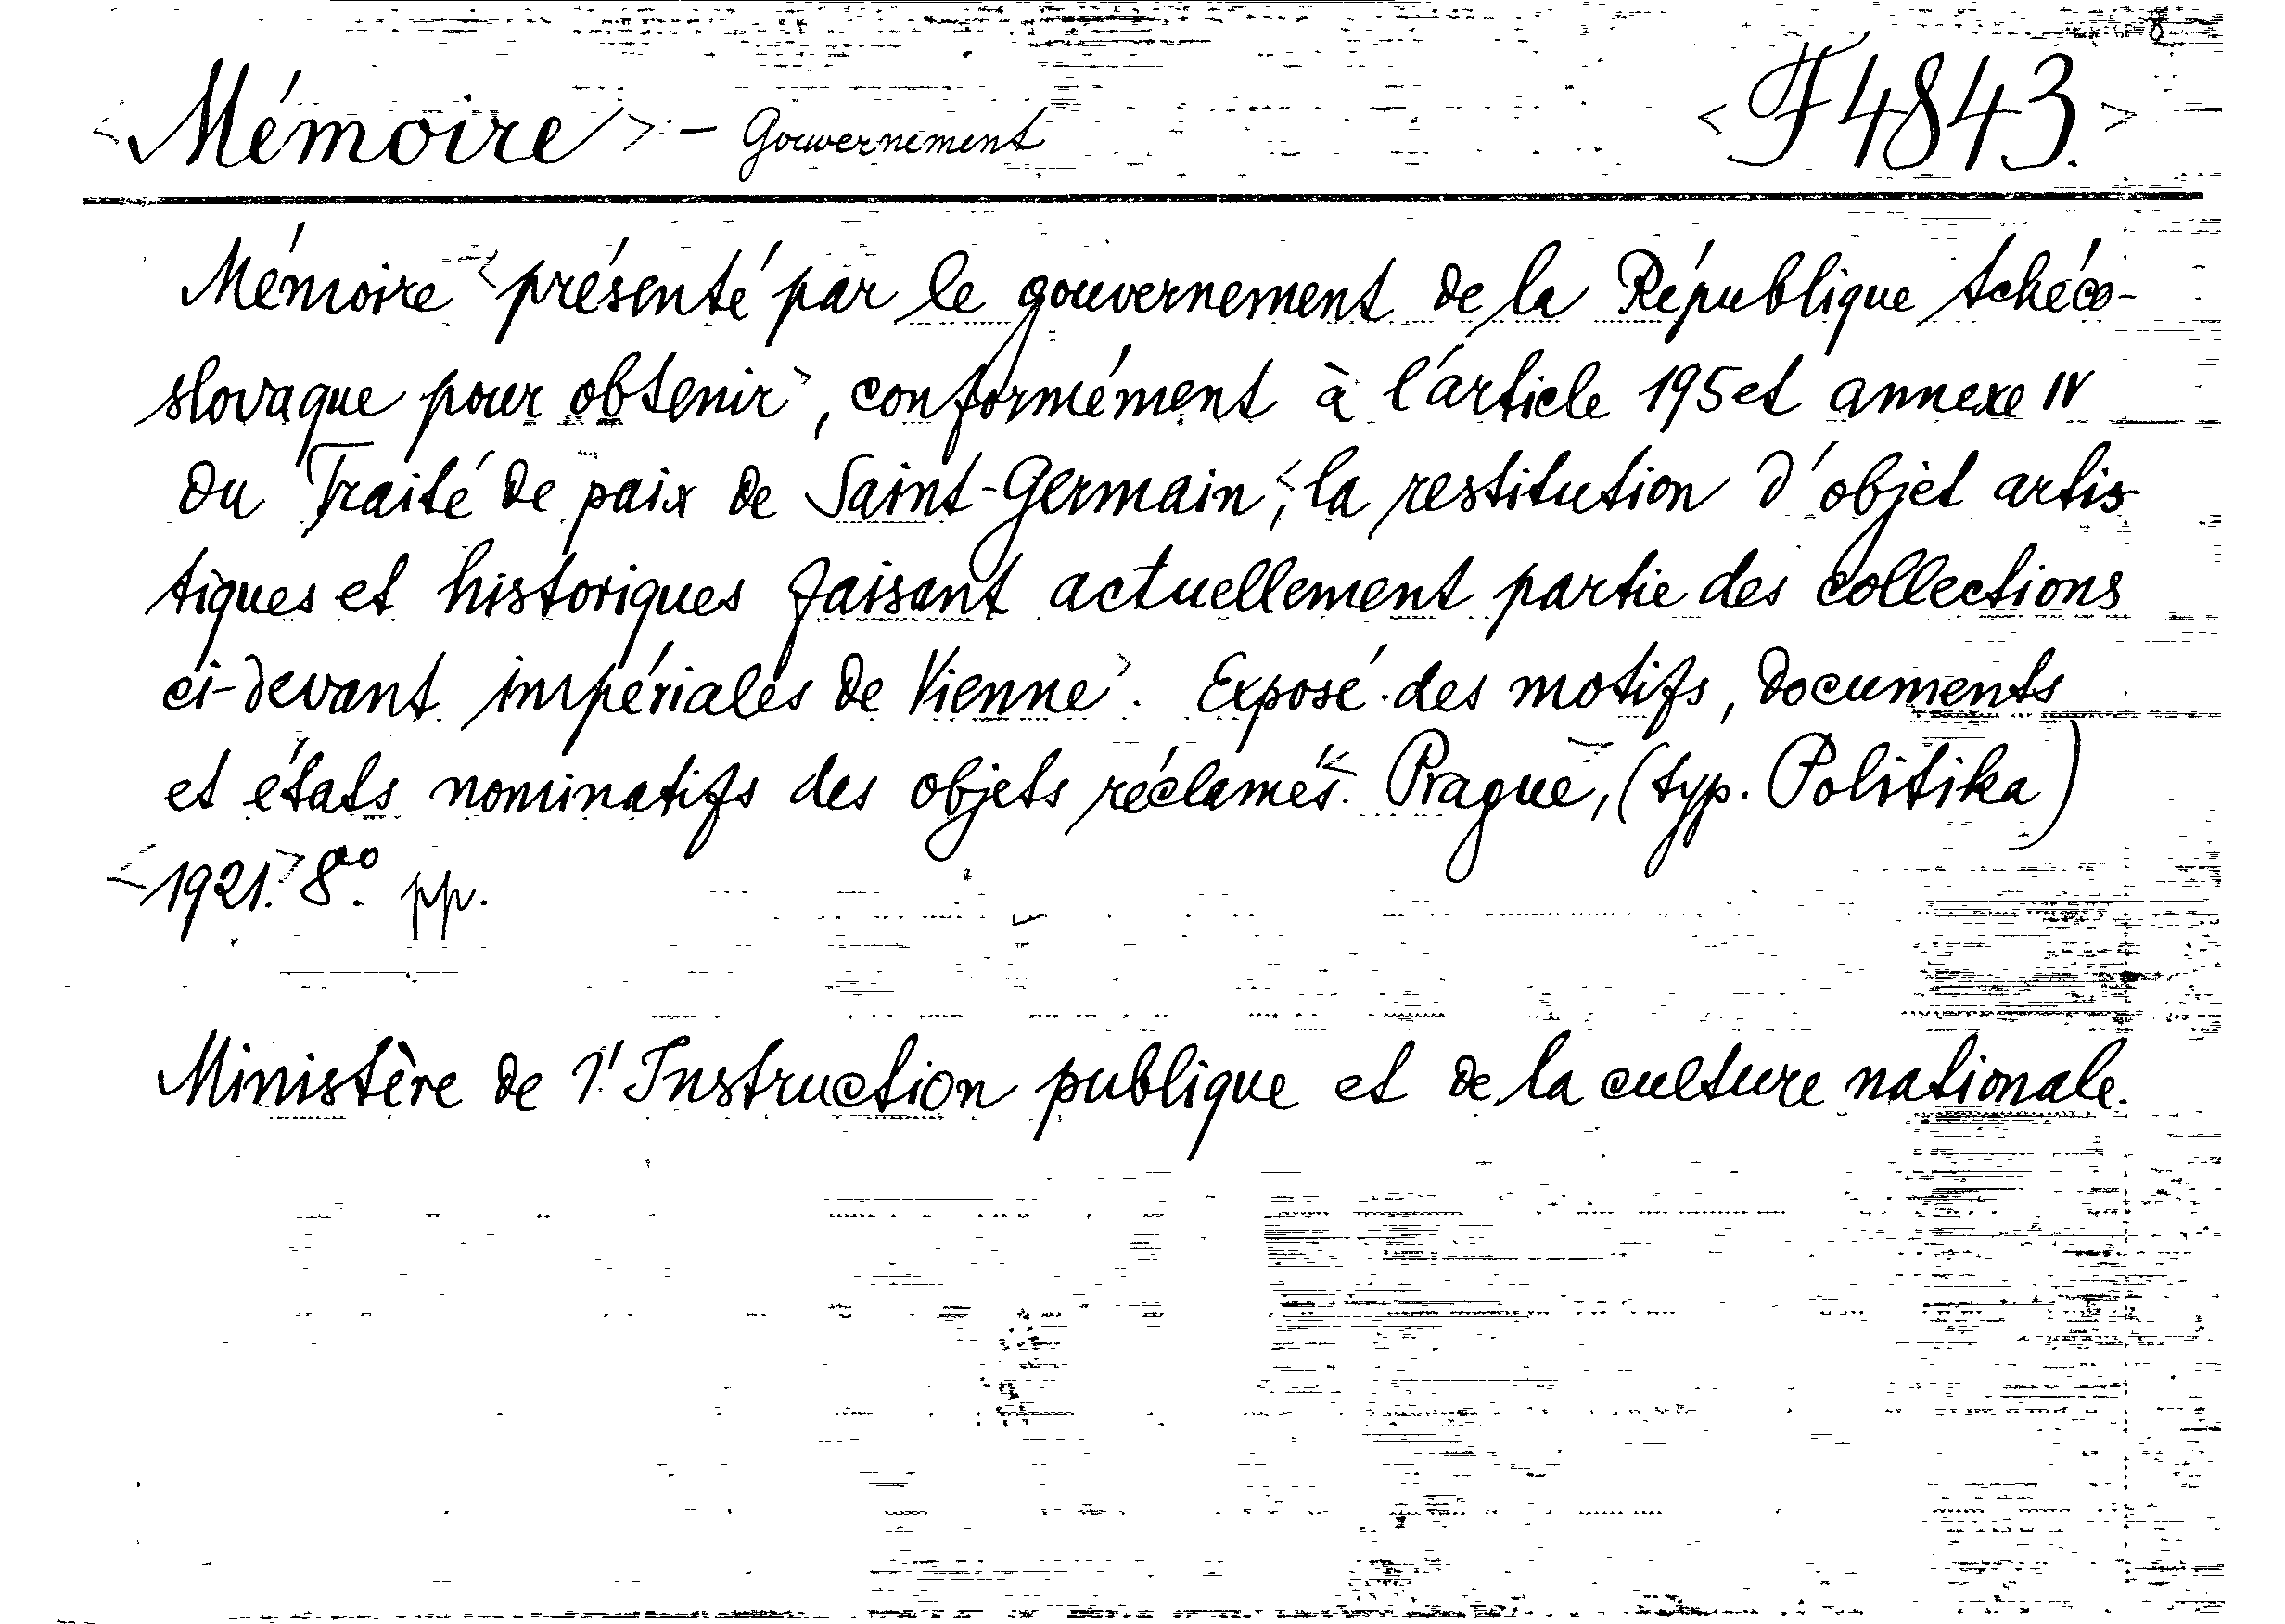 <Mémoire> - Gouvernement <F 4843.>
Mémoire <présenté par le gouvernement de la République tchéco-
slovaque pour obtenir>, conformément à l'article 195 et annexe IV
du Traité de paix de Saint-Germain, <la restitution d'objet artis-
tiques et historiques faisant actuellement partie des collections
ci-devant impériales de Vienne>. Exposé des motifs, documents
et états nominatifs des objets réclamés. <Prague, (typ. Politika)
<1921.> 8°. pp.
Ministère de l'Instruction publique et de la culture nationale.